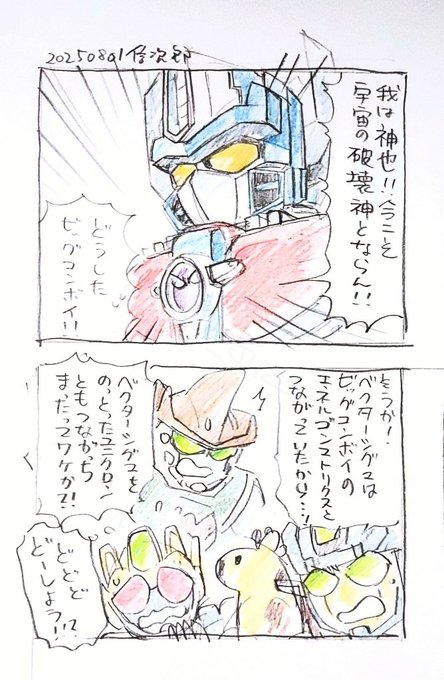 20250801 信次郎
我は神也!!今こそ
宇宙の破壊神とならん!!
どうした
ビッグコンボイ!!
そうか!
ベクターシグマは
ビッグコンボイの
エネルゴンマトリクスと
つながっていたから…!
ベクターシグマを
のっとったユニクロン
ともつながっち
まったってワケか!?
どどど
どーしよう!?